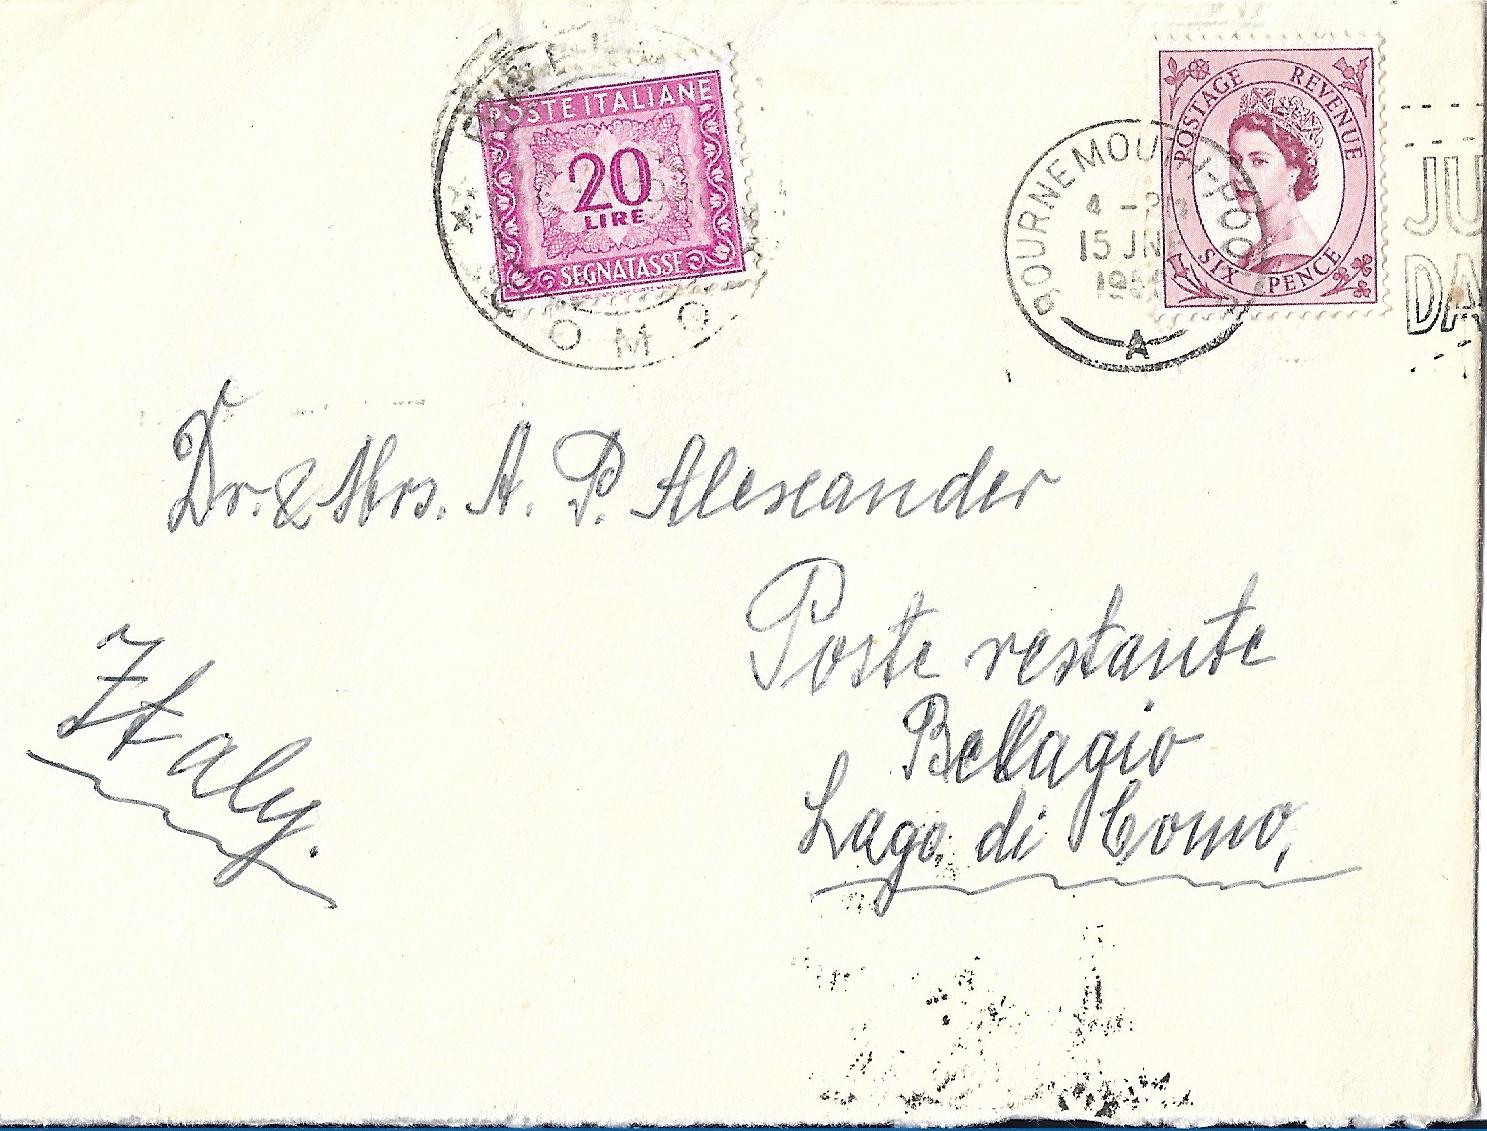 POSTE ITALIANE
20
LIRE
SEGNATASSE
COMO
POSTAGE REVENUE
SIX PENCE
BOURNEMOUTH-POOLE
4 - PM
15 JNE
A
JU
DA
Dr. & Mrs. A. P. Alexander
Poste restante
Bellagio
Lago di Como,
Italy.